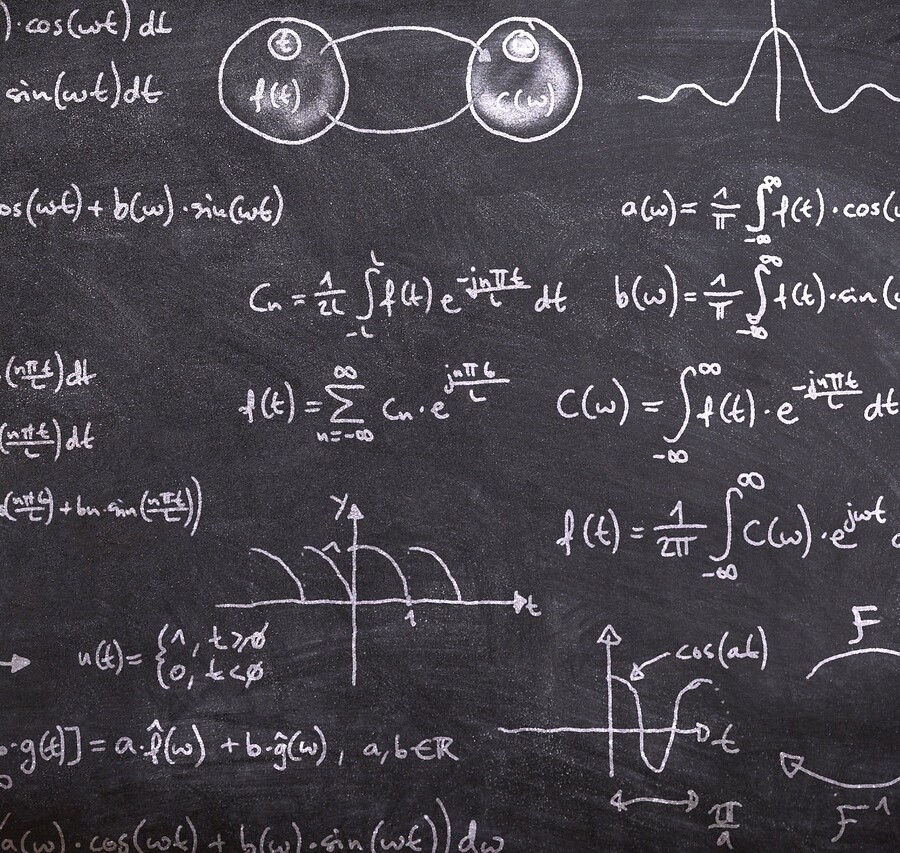 )·cos(ωt) dt
sin(ωt)dt
t
f(t)
ω
C(ω)
os(ωt) + b(ω)·sin(ωt)
a(ω) = 1/π ∫_{-∞}^{∞} f(t)·cos(ω
Cn = 1/2L ∫_{-L}^{L} f(t) e^{-jnπt/L} dt
b(ω) = 1/π ∫_{-∞}^{∞} f(t)·sin(ω
(nπt/L) dt
f(t) = ∑_{n=-∞}^{∞} Cn·e^{jnπt/L}
C(ω) = ∫_{-∞}^{∞} f(t)·e^{-jnπt/L} dt
(nπt/L) dt
(nπt/L) + bn·sin(nπt/L))
f(t) = 1/2π ∫_{-∞}^{∞} C(ω)·e^{jωt}
y
1
t
1
u(t) = {1, t≥0
{0, t<0
cos(at)
t
π/a
F
F^1
·g(t)] = a·f̂(ω) + b·ĝ(ω), a,b∈ℝ
a(ω)·cos(ωt) + b(ω)·sin(ωt)) dω